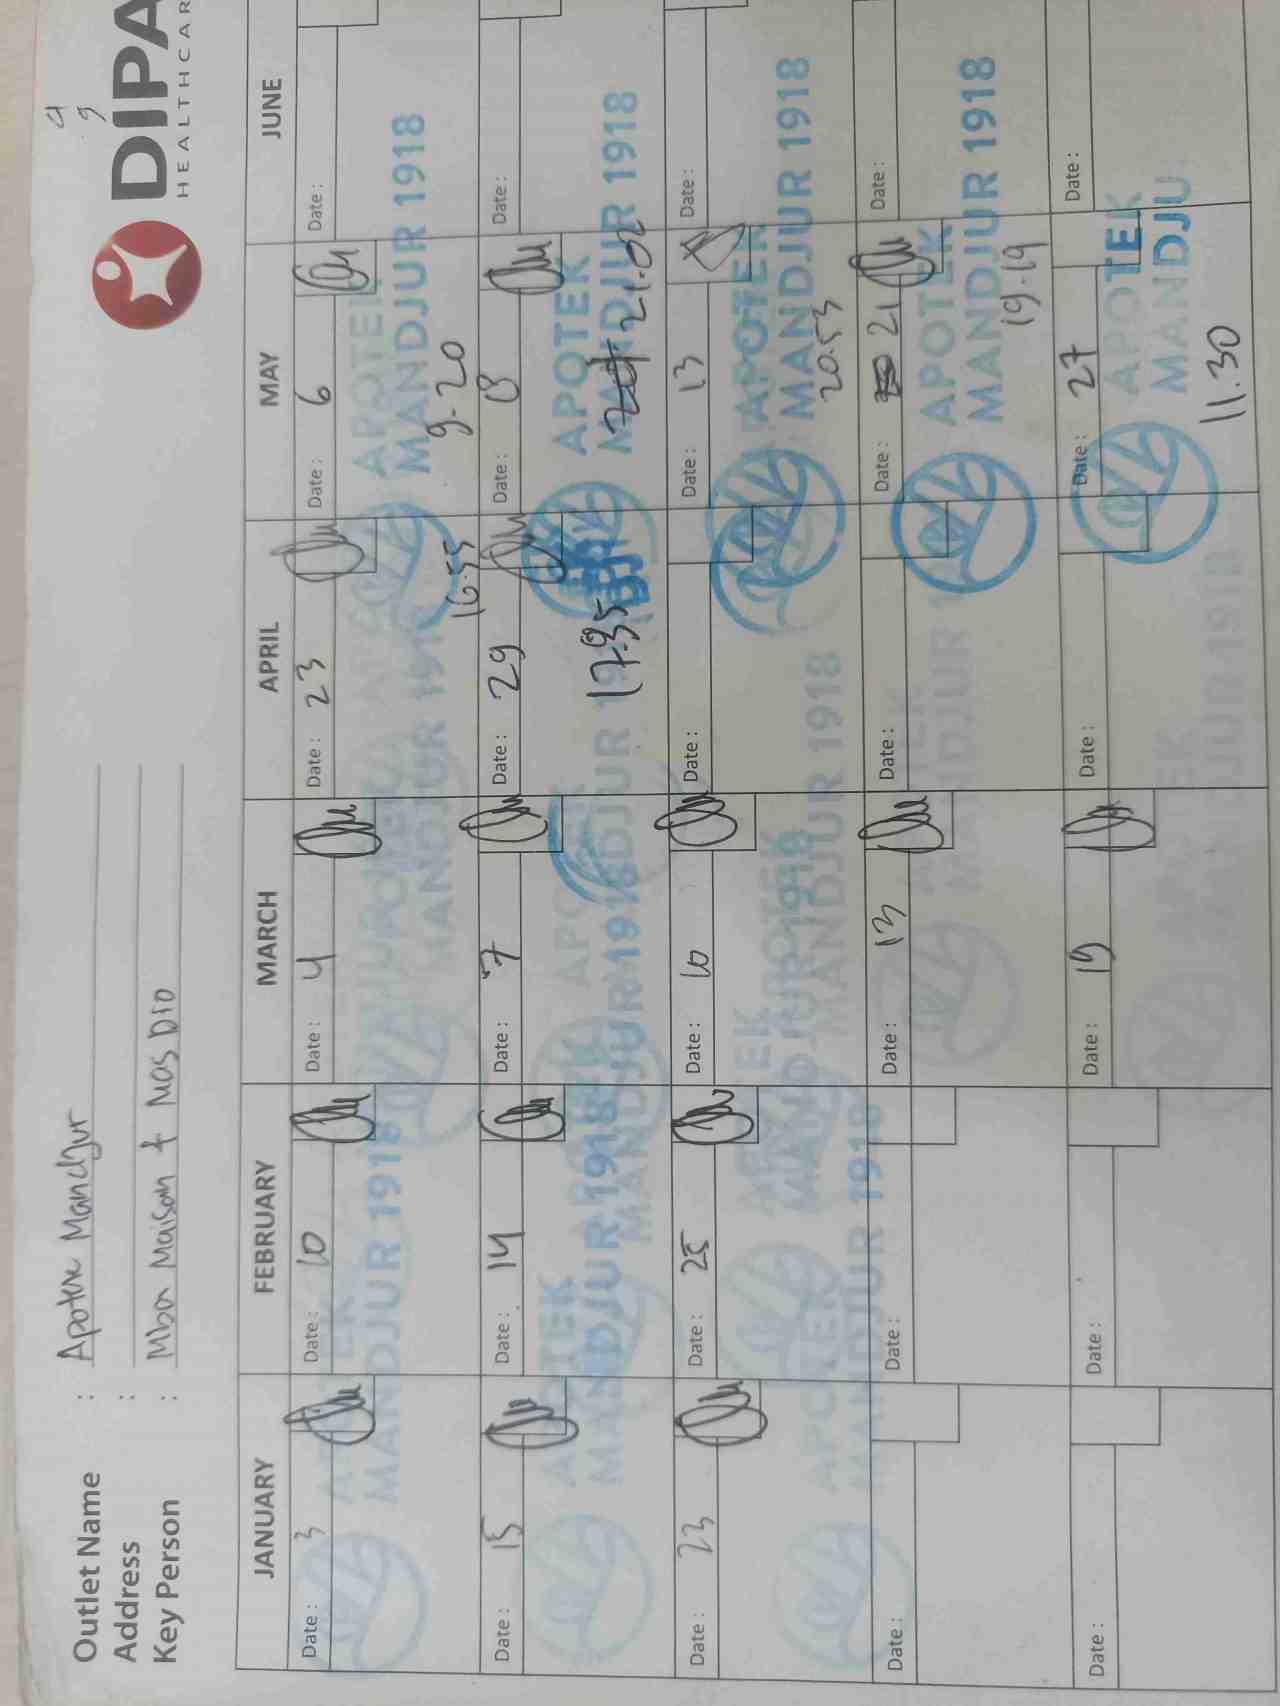 DIPA
HEALTHCAR
Outlet Name : Apotek Mandjur
Address :
Key Person : Mba Maisan + Mas Dio
JANUARY FEBRUARY MARCH APRIL MAY JUNE
Date : 3 Date : 10 Date : 4 Date : 23 Date : 6 Date :
APOTEK
MANDJUR 1918
16.55 9.20
Date : 15 Date : 14 Date : 7 Date : 29 Date : 8 Date :
APOTEK
MANDJUR 1918
17.35 21.02
Date : 23 Date : 25 Date : 10 Date : Date : 13 Date :
APOTEK
MANDJUR 1918
20.53
Date : Date : Date : 13 Date : Date : 21 Date :
APOTEK
MANDJUR 1918
19.19
Date : Date : Date : 19 Date : Date : 27 Date :
APOTEK
MANDJU
11.30